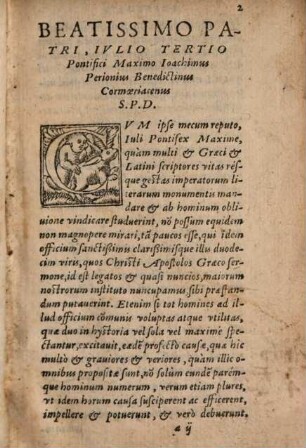 2
BEATISSIMO PA-
TRI, IVLIO TERTIO
Pontifici Maximo Ioachimus
Perionius Benedictinus
Cormœriacenus
S. P. D.
CVM ipse mecum reputo,
Iuli Pontifex Maxime,
quàm multi & Græci &
Latini scriptores vitas rés
que gestas imperatorum li
terarum monumentis man
dare & ab hominum obli-
uione vindicare studuerint, nõ possum equidem
non magnopere mirari, tã paucos esse, qui idem
officium sanctissimis clarissimisque illis duode-
cim viris, quos Christi Apostolos Græco ser-
mone, id est legatos & quasi nuncios, maiorum
nostrorum instituto nuncupamus sibi præstan-
dum putauerint. Etenim si tot homines ad il-
lud officium cõmunis voluptas atque vtilitas,
quæ duo in hystoria vel sola vel maximè spe-
ctantur, excitauit, eadẽ profectò causæ, quæ hic
multò & grauiores & veriores, quàm illic om-
nibus propositæ sunt, nõ solùm eundẽ parém-
que hominum numerum, verum etiam plures,
vt idem horum causa susciperent ac efficerent,
impellere & potuerunt, & verò debuerunt.
a ÿ